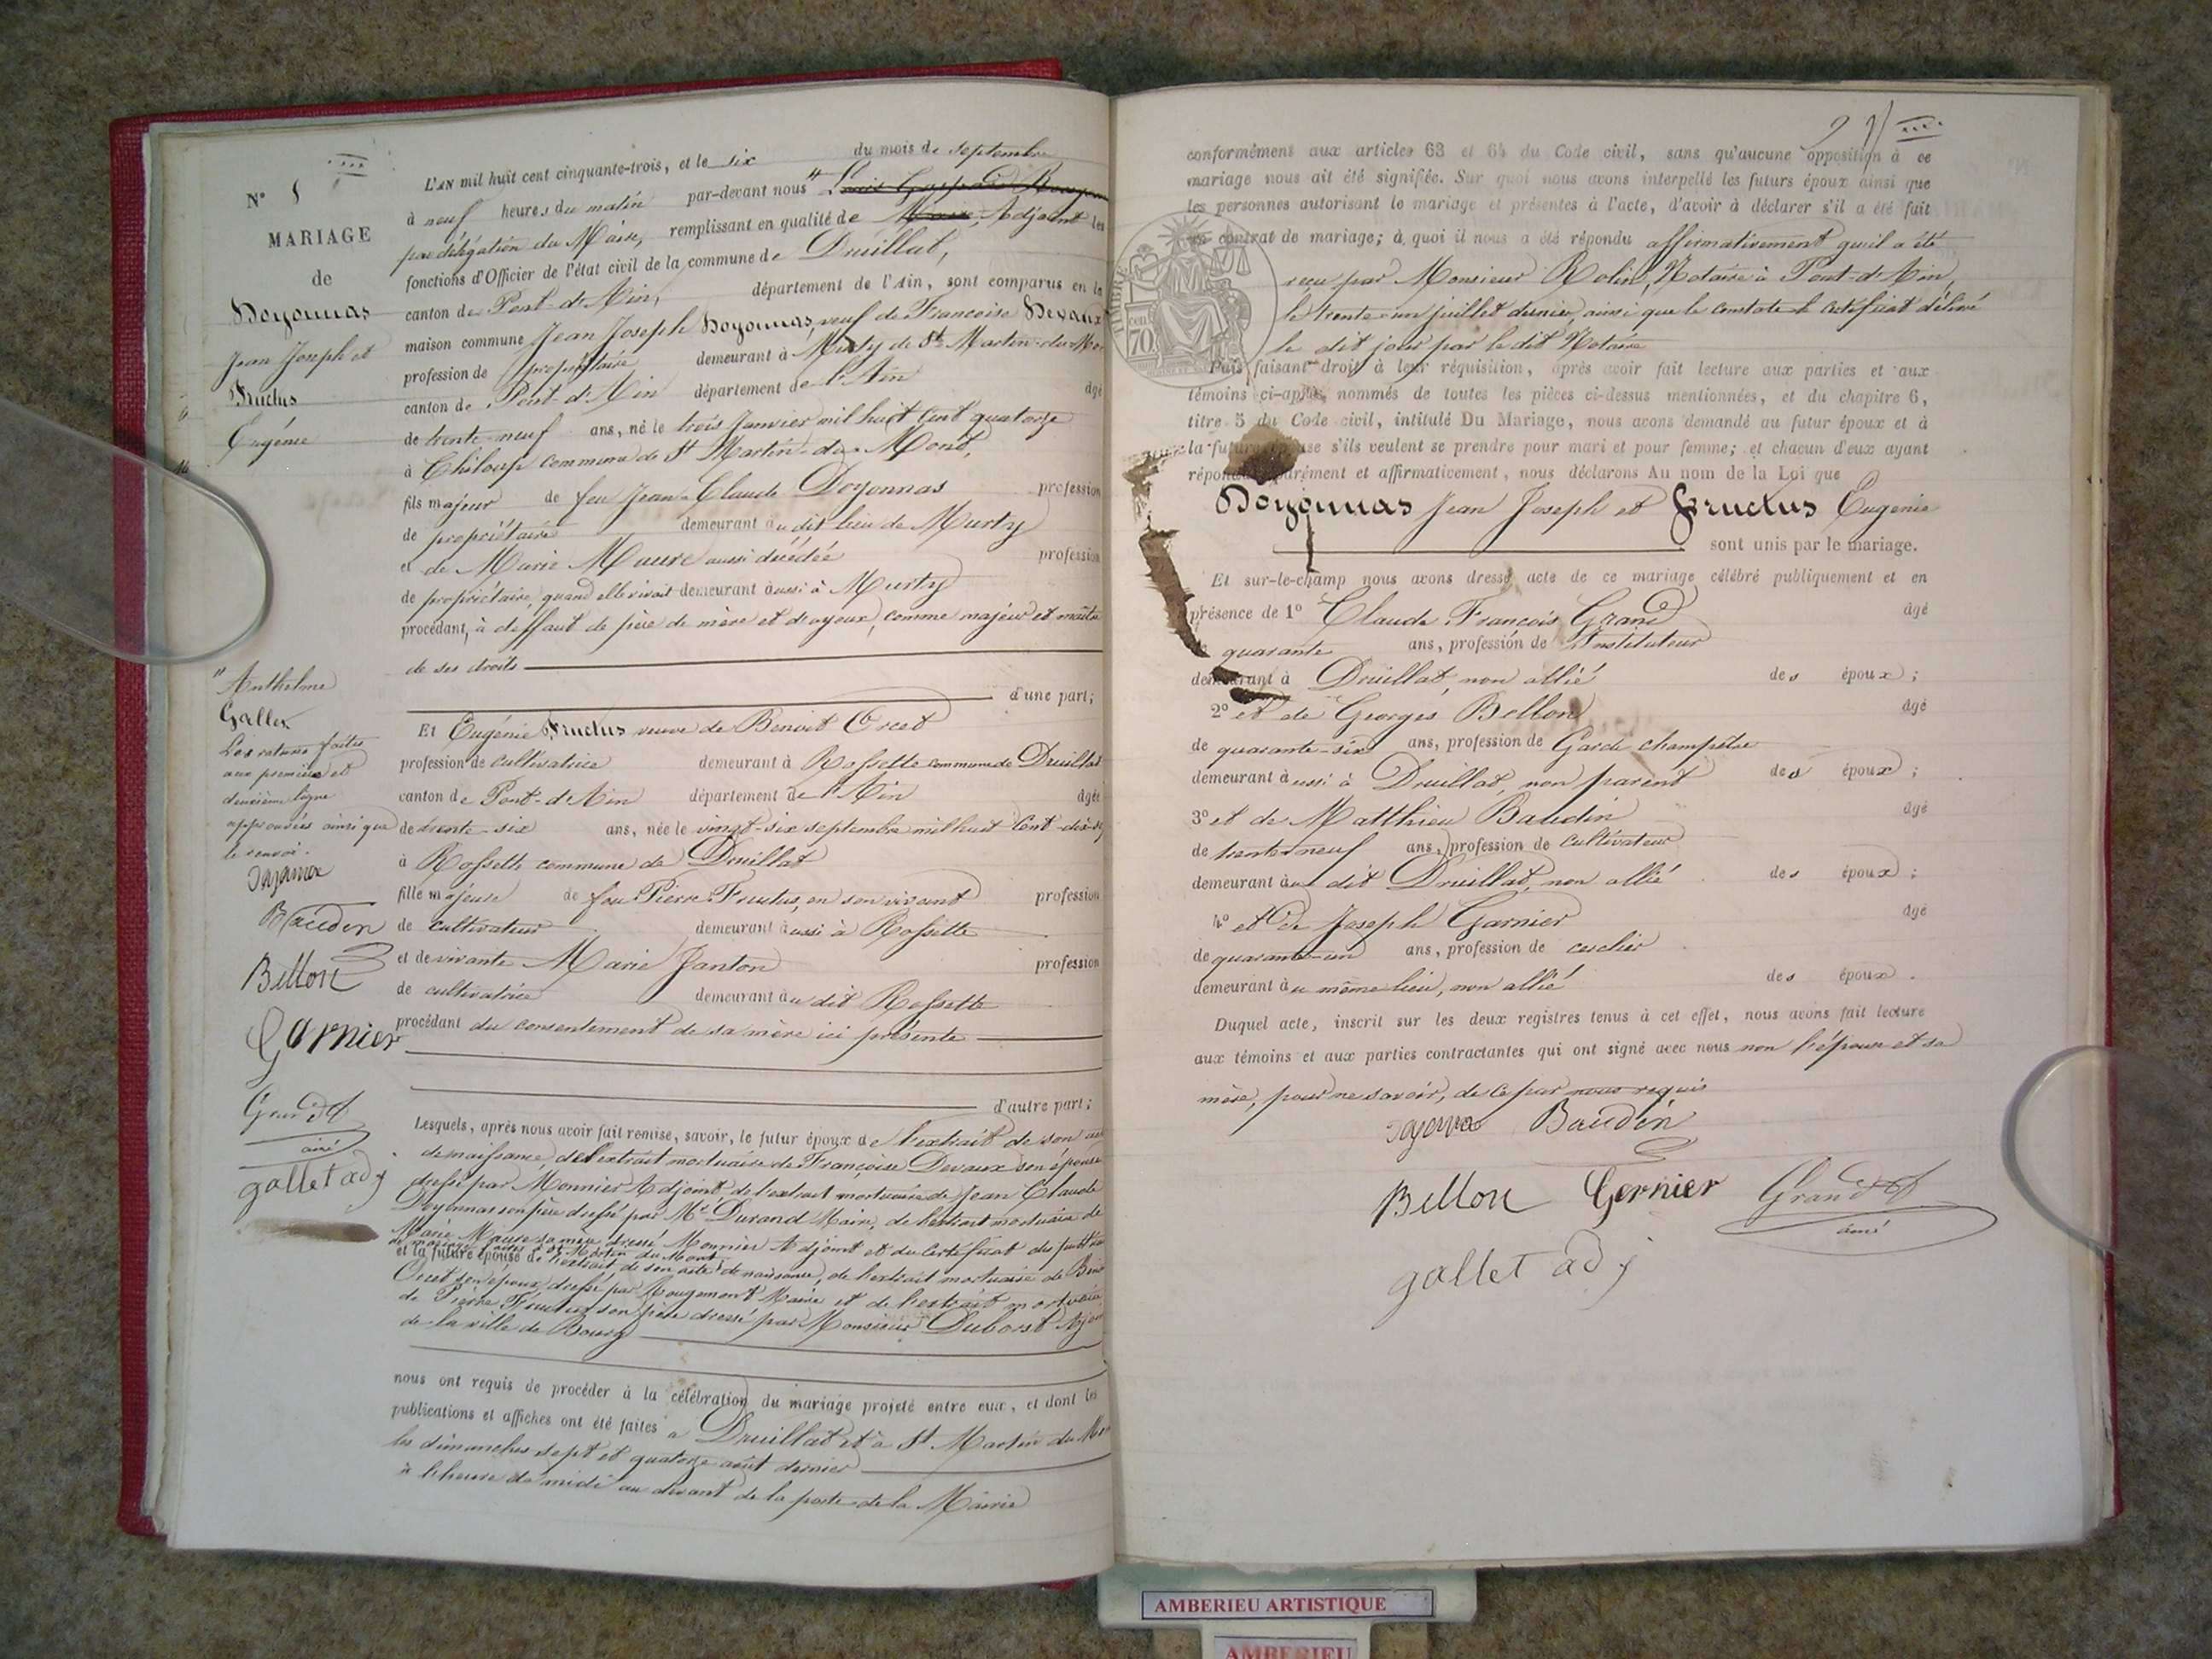 N° 8
MARIAGE
de
Doyonnas
Jean Joseph et
Fructus
Eugénie
L'AN mil huit cent cinquante-trois, et le six du mois de septembre
à neuf heures du matin par-devant nous " Louis Gaspard
par délégation du Maire, remplissant en qualité de Maire, Adjoint les
fonctions d'Officier de l'état civil de la commune de Druillat,
canton de Pont-d'Ain, département de l'Ain, sont comparus en la
maison commune Jean Joseph Doyonnas, veuf de Francoise Devaux
profession de propriétaire demeurant à Murty de St Martin-du-Mo
canton de Pont-d'Ain département de l'Ain âgé
de trente-neuf ans, né le trois Janvier mil huit cent quatorze
à Chiloup commune de St Martin-du-Mont,
fils majeur de feu Jean-Claude Doyonnas profession
de propriétaire demeurant au dit lieu de Murty
et de Marie Maure aussi décédée profession
de propriétaire, quand elle vivait demeurant aussi à Murty
procédant, à deffaut de père de mère et d'ayeux, comme majeur et maître
de ses droits
d'une part;
Et Eugénie Fructus veuve de Benoit Orcet
profession de cultivatrice demeurant à Rossette commune de Druillat
canton de Pont-d'Ain département de l'Ain âgée
de trente-six ans, née le vingt-six septembre mil huit cent dix-se
à Rossette commune de Druillat
fille majeure de feu Pierre Fructus, en son vivant profession
de cultivateur demeurant aussi à Rossette
et de vivante Marie Janton profession
de cultivatrice demeurant au dit Rossette
procédant du consentement de sa mère ici présente
d'autre part;
Lesquels, après nous avoir fait remise, savoir, le futur époux de l'extrait de son
de naissance, de l'extrait mortuaire de Françoise Devaux son épouse
dressé par Monnier Adjoint de l'extrait mortuaire de Jean Claude
Doyonnas son père dressé par Mr Durand Maire, de l'extrait mortuaire de
Marie Maure sa mère dressé Monnier Adjoint et du certificat des
de mariage faites à St Martin du Mont
et la future épouse de l'extrait de son acte de naissance, de l'extrait mortuaire de Beno
Orcet son époux dressé par Rougemont Maire et de l'extrait mortuaire
de Pierre Fructus son père dressé par Monsieur Duborst
de la ville de Bourg
nous ont requis de procéder à la célébration du mariage projeté entre eux, et dont les
publications et affiches ont été faites à Druillat et à St Martin du Mo
les dimanches sept et quatorze août dernier
à l'heure de midi au devant de la porte de la Mairie
" Anthelme
Gallet
Les ratures faites
aux première et
deuxième ligne
approuvées ainsi que
le renvoi.
Baudin
Bellon
Garnier
Grand
ainé
gallet adj
conformément aux articles 63 et 64 du Code civil, sans qu'aucune opposition à ce
mariage nous ait été signifiée. Sur quoi nous avons interpellé les futurs époux ainsi que
les personnes autorisant le mariage et présentes à l'acte, d'avoir à déclarer s'il a été fait
un contrat de mariage; à quoi il nous a été répondu affirmativement qu'il a été
reçu par Monsieur Rolin, Notaire à Pont-d'Ain,
le trente-un juillet dernier, ainsi que le constate le certificat délivré
le dit jour par le dit Notaire
Puis faisant droit à leur réquisition, après avoir fait lecture aux parties et aux
témoins ci-après nommés de toutes les pièces ci-dessus mentionnées, et du chapitre 6,
titre 5 du Code civil, intitulé Du Mariage, nous avons demandé au futur époux et à
la future épouse s'ils veulent se prendre pour mari et pour femme; et chacun d'eux ayant
répondu séparément et affirmativement, nous déclarons Au nom de la Loi que
Doyonnas Jean Joseph et Fructus Eugénie
sont unis par le mariage.
Et sur-le-champ nous avons dressé acte de ce mariage célébré publiquement et en
présence de 1° Claude François Grand âgé
de quarante ans, profession de Instituteur
demeurant à Druillat, non allié des époux;
2° et de Georges Bellon âgé
de quarante-six ans, profession de Garde champêtre
demeurant aussi à Druillat, non parent des époux;
3° et de Matthieu Baudin âgé
de trente-neuf ans, profession de cultivateur
demeurant au dit Druillat, non allié des époux;
4° et de Joseph Garnier âgé
de quarante-un ans, profession de
demeurant au même lieu, non allié des époux.
Duquel acte, inscrit sur les deux registres tenus à cet effet, nous avons fait lecture
aux témoins et aux parties contractantes qui ont signé avec nous non l'épouse et sa
mère, pour ne savoir, de ce par nous requis
Baudin
Bellon Gernier Grand
ainé
gallet adj
70
AMBERIEU ARTISTIQUE
AMBERIEU